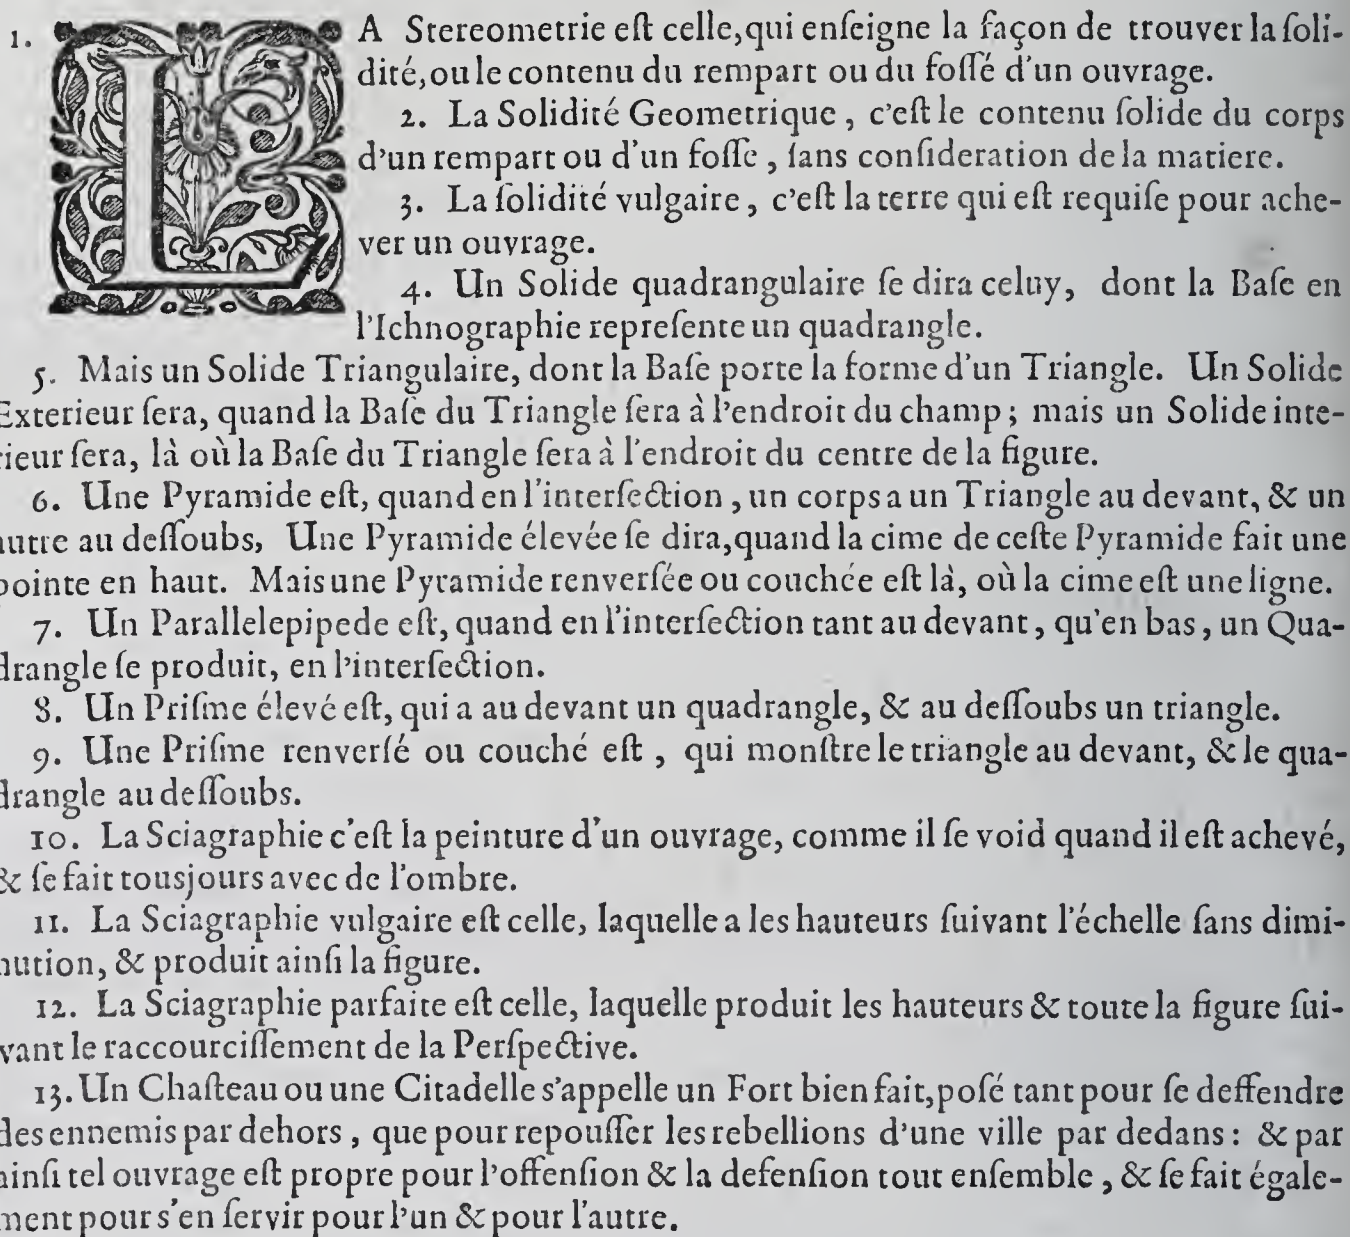 1. LA Stereometrie eſt celle, qui enſeigne la façon de trouver la ſoli-
dité, ou le contenu du rempart ou du foſſé d'un ouvrage.
2. La Solidité Geometrique, c'eſt le contenu ſolide du corps
d'un rempart ou d'un foſſe, ſans conſideration de la matiere.
3. La ſolidité vulgaire, c'eſt la terre qui eſt requiſe pour ache-
ver un ouvrage.
4. Un Solide quadrangulaire ſe dira celuy, dont la Baſe en
l'Ichnographie repreſente un quadrangle.
5. Mais un Solide Triangulaire, dont la Baſe porte la forme d'un Triangle. Un Solide
Exterieur ſera, quand la Baſe du Triangle ſera à l'endroit du champ; mais un Solide inte-
rieur ſera, là où la Baſe du Triangle ſera à l'endroit du centre de la figure.
6. Une Pyramide eſt, quand en l'interſection, un corps a un Triangle au devant, & un
autre au deſſoubs, Une Pyramide élevée ſe dira, quand la cime de ceſte Pyramide fait une
pointe en haut. Mais une Pyramide renverſée ou couchée eſt là, où la cime eſt une ligne.
7. Un Parallelepipede eſt, quand en l'interſection tant au devant, qu'en bas, un Qua-
drangle ſe produit, en l'interſection.
8. Un Priſme élevé eſt, qui a au devant un quadrangle, & au deſſoubs un triangle.
9. Une Priſme renverſé ou couché eſt, qui monſtre le triangle au devant, & le qua-
drangle au deſſoubs.
10. La Sciagraphie c'eſt la peinture d'un ouvrage, comme il ſe void quand il eſt achevé,
& ſe fait tousjours avec de l'ombre.
11. La Sciagraphie vulgaire eſt celle, laquelle a les hauteurs ſuivant l'échelle ſans dimi-
nution, & produit ainſi la figure.
12. La Sciagraphie parfaite eſt celle, laquelle produit les hauteurs & toute la figure ſui-
vant le raccourciſſement de la Perſpective.
13. Un Chaſteau ou une Citadelle s'appelle un Fort bien fait, poſé tant pour ſe deffendre
des ennemis par dehors, que pour repouſſer les rebellions d'une ville par dedans: & par
ainſi tel ouvrage eſt propre pour l'offenſion & la defenſion tout enſemble, & ſe fait égale-
ment pour s'en ſervir pour l'un & pour l'autre.